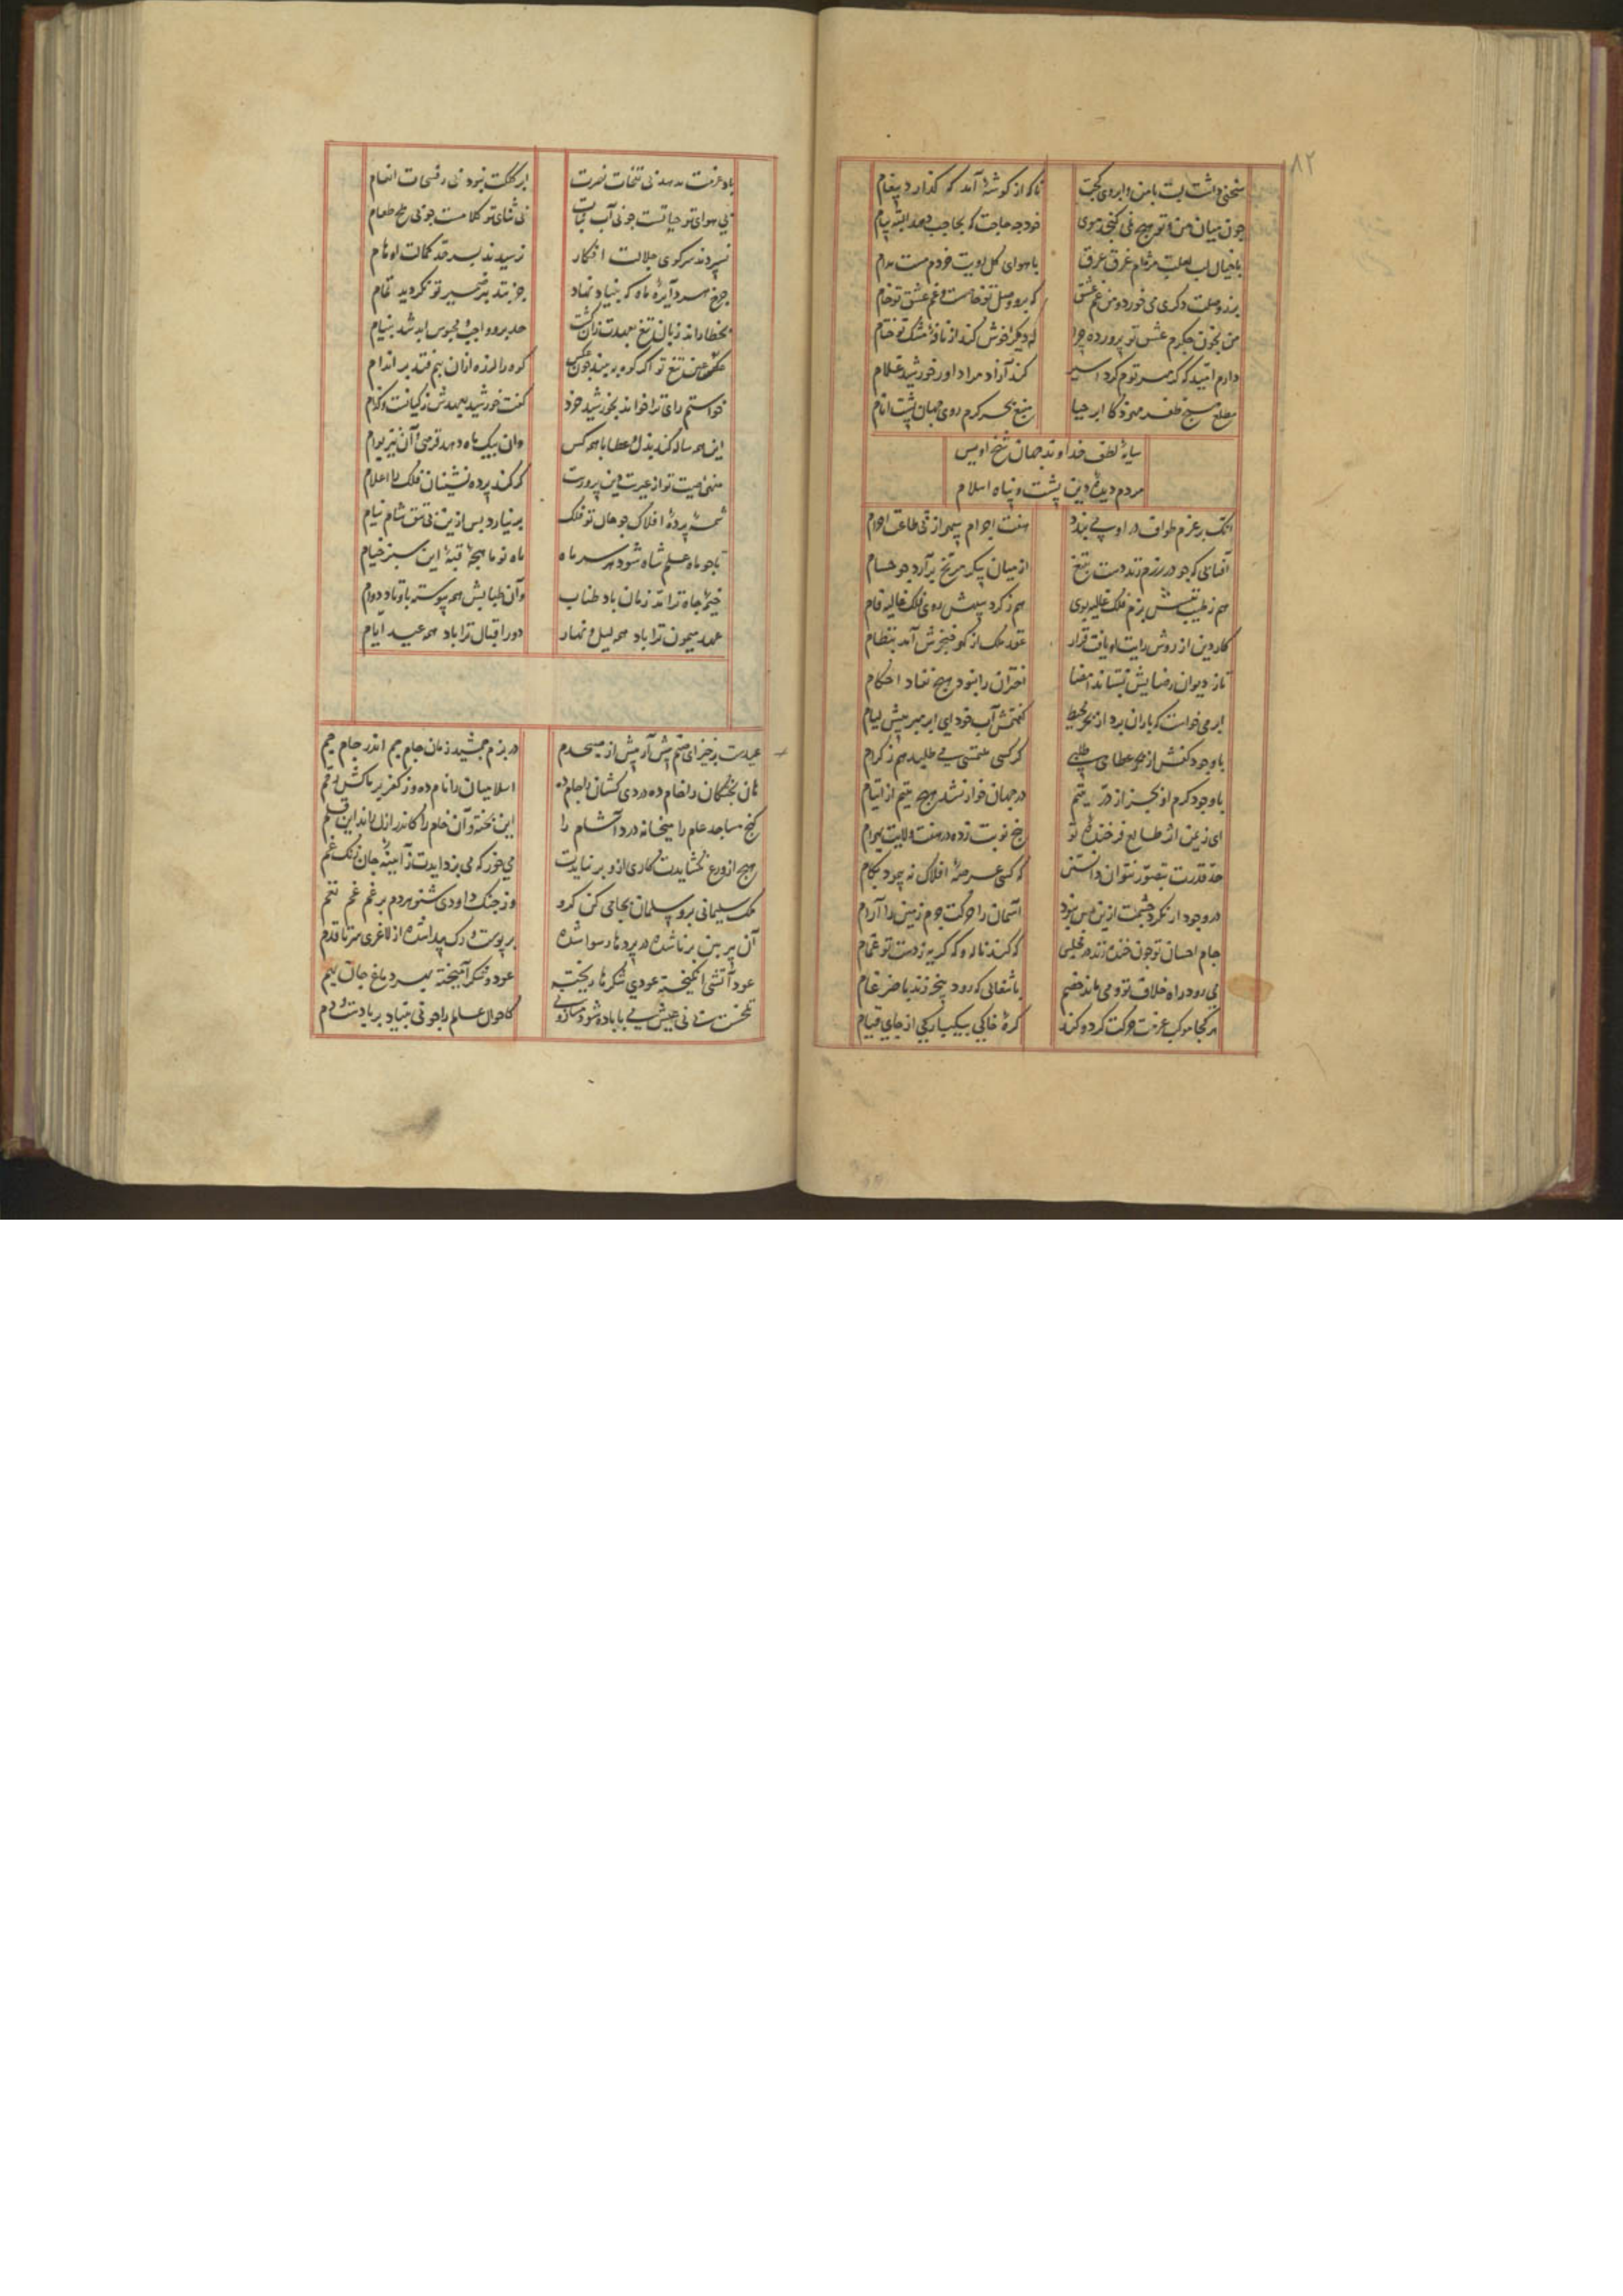 ۸۲
سخنی داشت لبت با من و ابروی کجت
ناکه از کوشهٔ آمد که کذارد پیغام
چون میان من و تو هیچ نمی کنجد موی
خود چه حاجت که بحاجب دهد البته پیام
با خیال لب لعلت مژه‌ام غرق عرق
با هوای کل رویت خردم مست مدام
برد وصلت دکری می خورد و من غم عشق
که برو وصل تو خاصست و غم عشق تو عام
من بخون جکرم عشق تو پرورده چرا
دیکرا خوش کند از نافهٔ مشک تو ختام
دارم امید که کر مهر توم کرد اسیر
کند آزاد مرا داور خورشید غلام
مطلع صبح ظفر مهر ذکا ابر حیا
منبع بحر کرم روی جهان پشت انام
سایهٔ لطف خداوند جهان شیخ اویس
مردم دیدهٔ دین پشت و پناه اسلام
آنک بر عزم طواف در او می بندد
هفت اجرام سپهر از پی طاعت احرام
آفتابی که چو در رزم زند دست بتیغ
از میان پیکر مریخ برآرد چو حسام
هم ز طیب نفسش بزم فلک غالیه بوی
هم ز کرد سپهش روی فلک غالیه فام
کار دین از روش رایت او یافت قرار
عقد ملک از کهر خنجرش آمد بنظام
تا ز دیوان رضایش نستاند امضا
اختران را نبود هیچ نفاذ احکام
ابر می خواست که باران برد از بحر محیط
کفتمش آب خود ای ابر مبر پیش لیام
با وجود کفش از بحر عطا می طلبی
کر کسی همتی می طلبد هم ز کرام
با وجود کرم او بجز از در یتیم
در جهان خوار نشد هیچ یتیم از ایتام
ای زمین از اثر طالع فرخنده تو
پنج نوبت زده در هفت ولایت بهرام
حد قدرت بتصور نتوان دانستن
که کسی عرصهٔ افلاک نپیمود بکام
در وجود ار نکرد چشمت ازین پس نبود
آسمان را حرکت جرم زمین را آرام
جام احسان تو چون خنده زند در مجلس
که کند ناله و که کریه ز دست تو غمام
می رود راه خلاف تو و می ماند خصم
با شغالی که رود پنجه زند با ضرغام
هر کجا موکب عزمت حرکت کرد و کند
کرهٔ خاکی بیکبارکی از جای قیام
باد عزمت ندمد بی نفحات نصرت
ابر کلکت نبود بی رشحات انعام
بی هوای تو حیاتست چو بی آب نبات
بی ثنای تو کلامست چو بی ملح طعام
نسپردند سر کوی جلالت افکار
نرسیدند بسر حد کمالت اوهام
چرخ هر دایره ماه که بنیاد نهاد
جز بتدبیر ضمیر تو نکردید تمام
بخطا راند زبان تیغ بعهدت زان کشت
حد برو واجب و محبوس ابد شد بنیام
عکس تیغ تو اکر کوه ببیند چون عکس
کوه را لرزه از آن بیم فتد بر اندام
خواستم رای ترا خواند بخورشید خرد
کفت خورشید بعهدش ز کیانست و کدام
این همه ساله کند بذل و عطا با همه کس
وان بیک ماه دهد قرصی و آن نیز بوام
منهی صیت تو از غیرت دین پرورت
کر کند پرده نشینان فلک را اعلام
شمسهٔ پردهٔ افلاک چو خال تو فلک
بر نیارد پس ازین بی تتق شام بنام
تا چو ماه علم شاه شود هر سر ماه
ماه نو ماهچهٔ قبهٔ این سبز خیام
خیمهٔ جاه ترا تار زمان باد طناب
وآن طنابش همه پیوسته باوتاد دوام
عهد میمون ترا باد همه لیل و نهار
دور اقبال ترا باد همه عید ایام
عیدست برخیز ای صنم پیش آر پیش از صبحدم
در بزم جمشید زمان جام جم اندر جام جم
هان پختکان را خام ده دردی کشان را جام ده
اسلامیان را نام ده وز کفر برکش رقم
کنج مساجد عام را میخانه درد آشام را
این پخته و آن خام را کاندر ازل راند این قلم
هیچ از ورع نکشایدت کاری ازو برنایدت
می خور که می بزدایدت ز آیینهٔ جان زنک غم
ملک سلیمانی برو بسلمان بجامی کن کرو
وز چنک داودی شنو هر دم بر غم غم نغم
آن پیر بین برنا شده در پرده‌ها رسوا شده
بر پوست رک پیدا شده از لاغری سر تا قدم
عود آتشی انکیخته عودی شکرها ریخته
عود و شکر آمیخته بهر دماغ جان بهم
کاحوال عالم را چو نی بنیاد بر بادست و دم